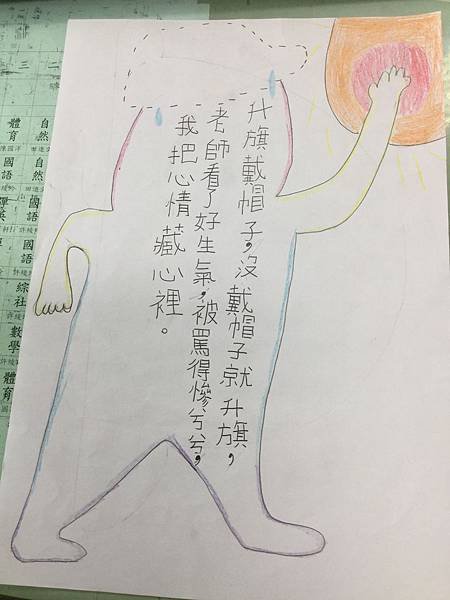 升旗戴帽子，沒戴帽子就升旗，
老師看了好生氣，被罵得慘兮兮，
我把心情藏心裡。
三
二
自然
自然
國語
國語
體育
國語
綜社
數學
體育